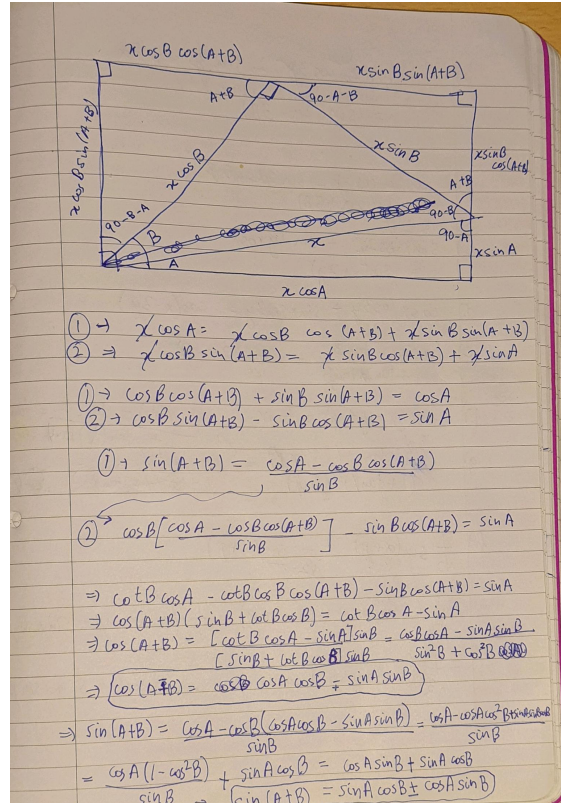 x cosB cos(A+B)
x sinB sin(A+B)
A+B
90-A-B
x cosB sin(A+B)
x cosB
x sinB
x sinB cos(A+B)
A+B
90-B-A
B
90-B
90-A
x
A
x sinA
x cosA
① → x cosA = x cosB cos(A+B) + x sinB sin(A+B)
② ⇒ x cosB sin(A+B) = x sinB cos(A+B) + x sinA
① → cosB cos(A+B) + sinB sin(A+B) = cosA
② → cosB sin(A+B) - sinB cos(A+B) = sinA
① → sin(A+B) = cosA - cosB cos(A+B)
sinB
② cosB [cosA - cosB cos(A+B)] - sinB cos(A+B) = sinA
sinB
⇒ cotB cosA - cotB cosB cos(A+B) - sinB cos(A+B) = sinA
⇒ cos(A+B) (sinB + cotB cosB) = cotB cosA - sinA
⇒ cos(A+B) = [cotB cosA - sinA] sinB = cosB cosA - sinA sinB
[sinB + cotB cosB] sinB sin²B + cos²B
⇒ cos(A±B) = cosA cosB ∓ sinA sinB
⇒ sin(A+B) = cosA - cosB (cosA cosB - sinA sinB) = cosA - cosA cos²B + sinA sinB cosB
sinB sinB
= cosA (1 - cos²B) + sinA cosB = cosA sinB + sinA cosB
sinB ⇒ sin(A±B) = sinA cosB ± cosA sinB